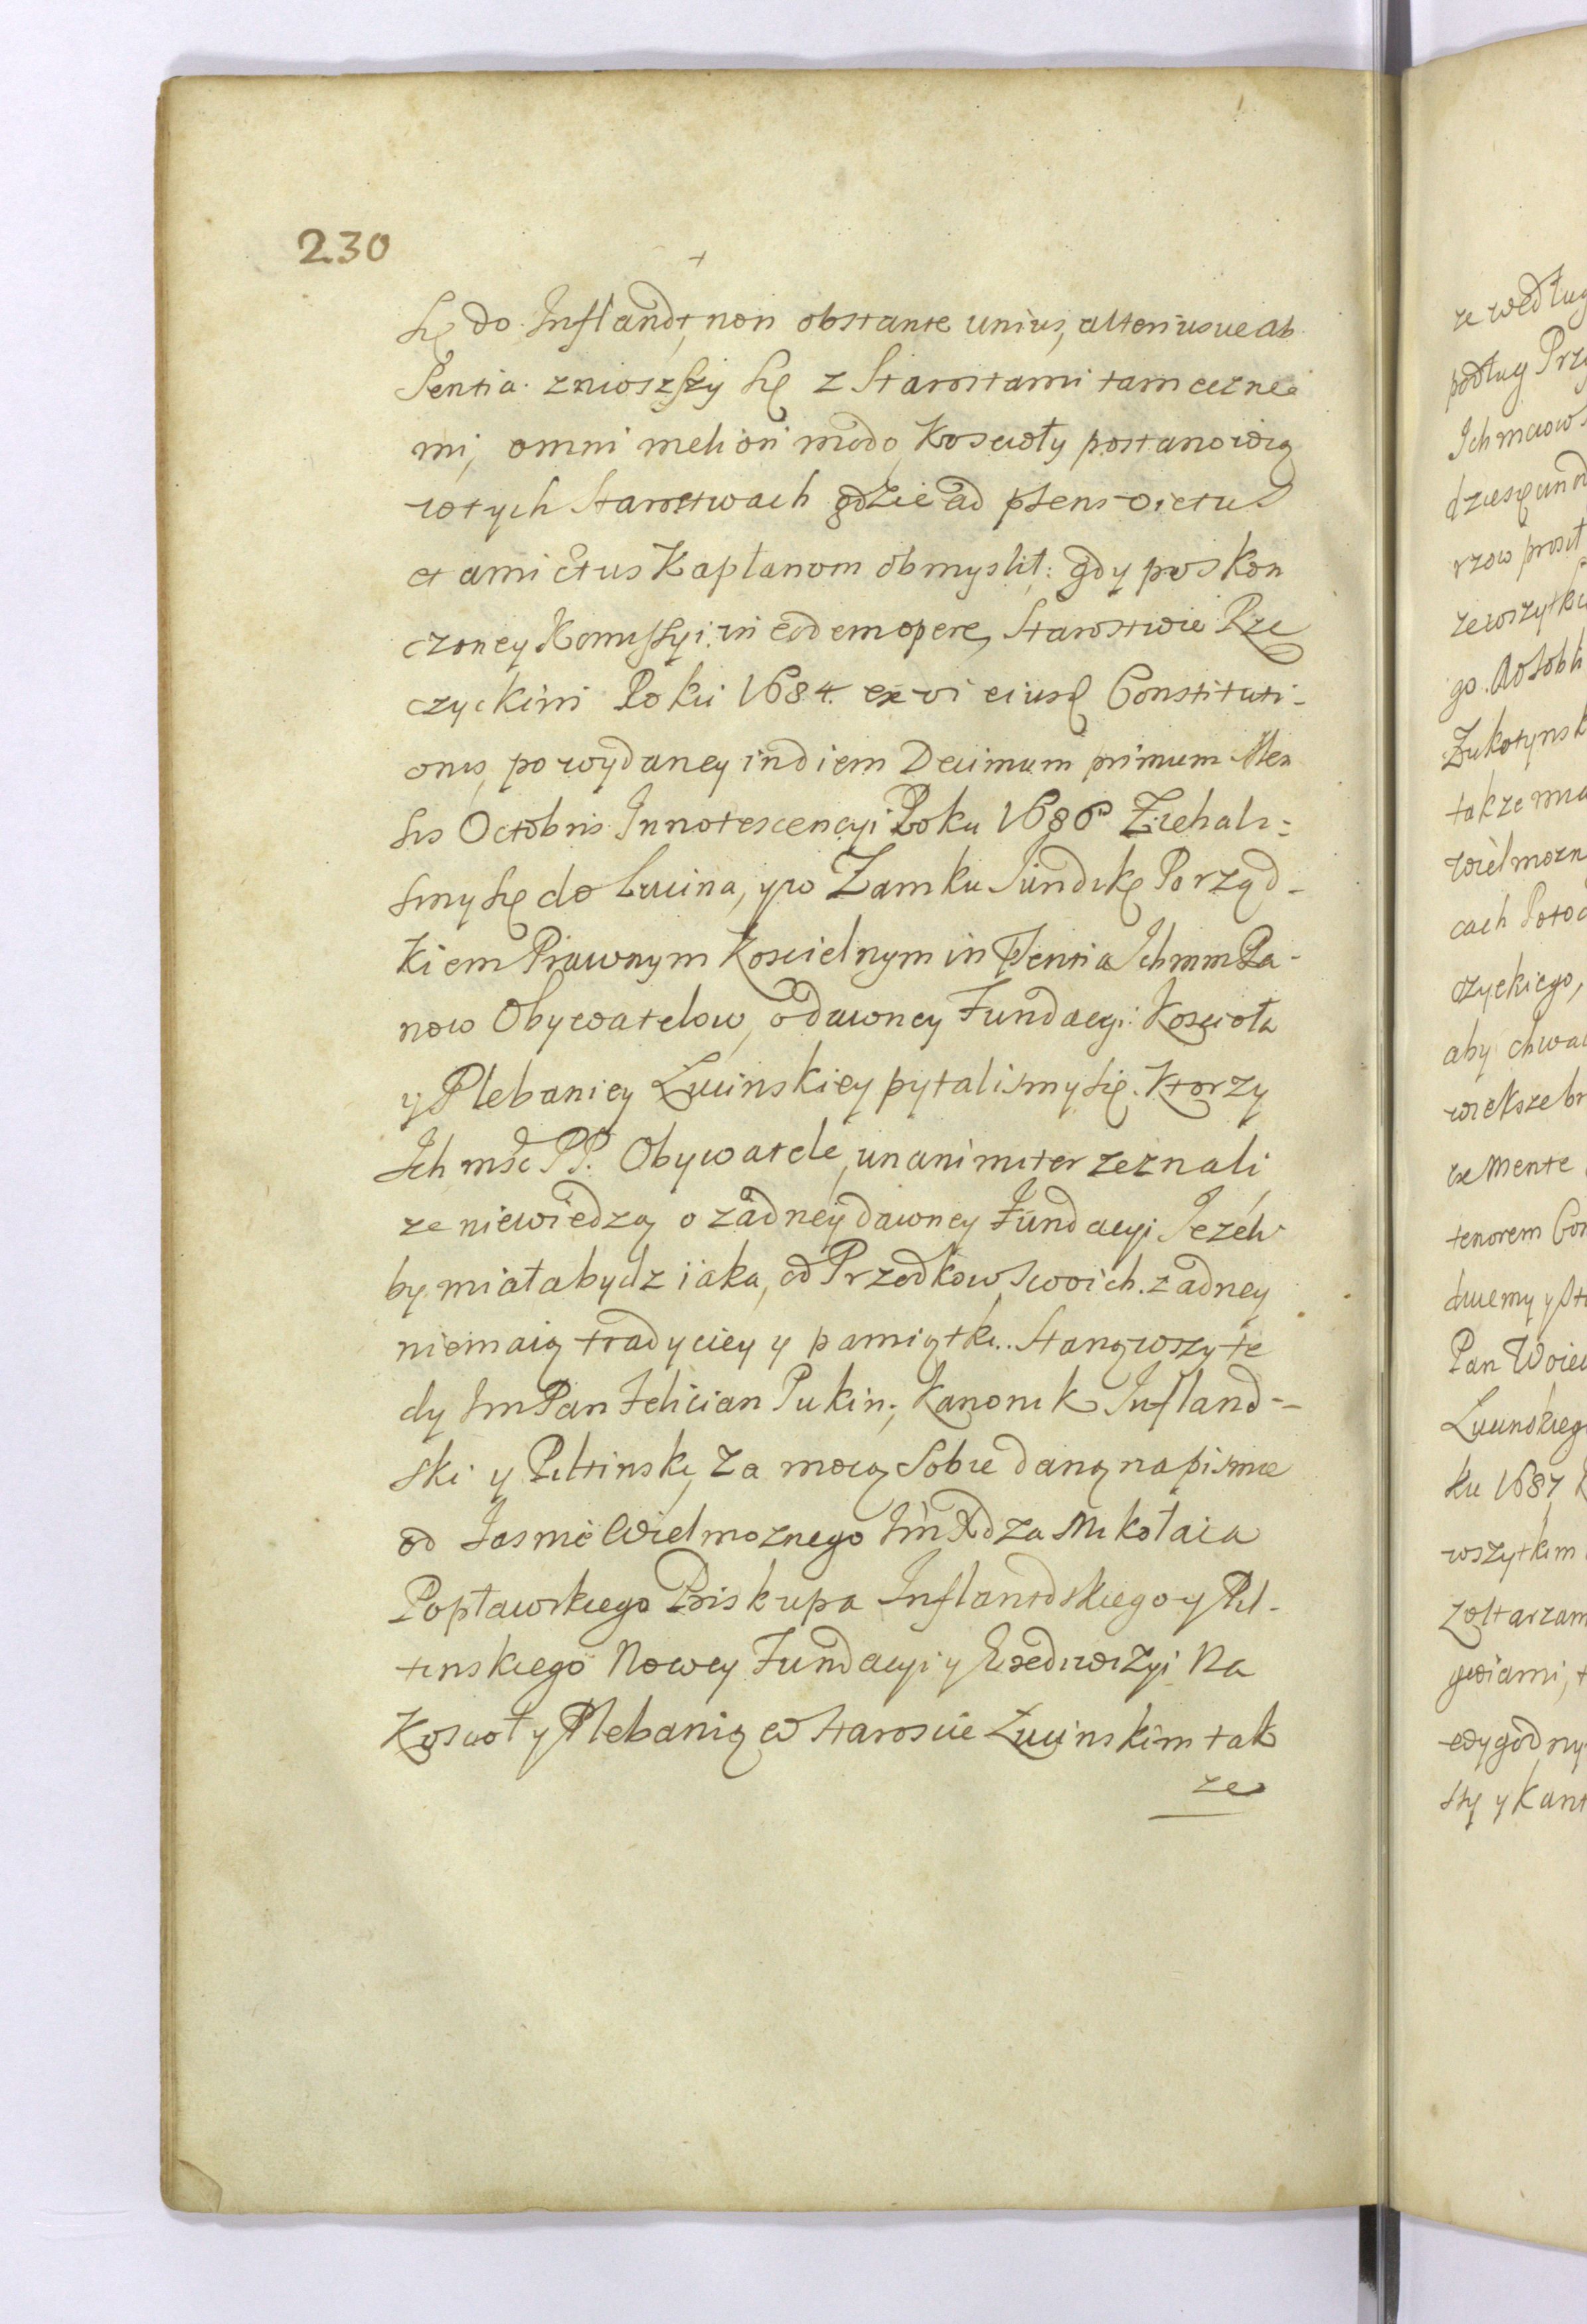 230
Się do Inflandt, non obstante unius, alteriusue ab
Sentia. zniozszy Się z Starostami tameczne
mi, omni meliori modo, Koscioły postanowią
wtych Starostwach gdzie ad psens victus
et amictus Kapłanom obmyslił: gdy poskon
czoney Komissyi: in eodem opere, Starostwie Rze
czyckim Roku 1684. ex vi eiusd Constituti-
onis, po wydaney in diem Decimum primum Men
sis Octobris Innotescencyi Roku 1686 Ziehali-
smy Się do Lucina, y w Zamku Porząd-
kiem Prawnym Koscielnym in Psentia Ichmm Pa-
now Obywatelow, o dawney Fundacyi Koscioła
y Plebaniey Lucinskiey pytalismy Się. Ktorzy
Ich mśc PP. Obywatele, unanimiter zeznali
ze niewiedzą o żadney dawney Fundacyi Jeżeli
by miała bydz iaka, od Przodkow Swoich. zadney
niemaią tradyciey y pamiątki.. Stanąwszy te
dy Im Pan Felician Pukin, Kanonik Infland-
ski y Piltinski, Za mocą Sobie daną na pismie
od Jasnie Wielmoznego Im Xdza Mikołaia
Popławskiego Biskupa Inflantdskiego y Pil-
tinskiego Nowey Fundacyi y Exdiwizyi Na
Koscioł y Plebanią w Staroscie Lucinskim tak
ze
ze według
podług Prz
Ichmciow
rzow prosił
zewszytki
go. Aosobli
Zukotynsk
także
wielmozn
cach Poto
czyckiego,
aby chwa
większe
ex mente
tenorem Con
Pan Woie
Lucinskieg
ku 1687
wszytkim
zołtarzam